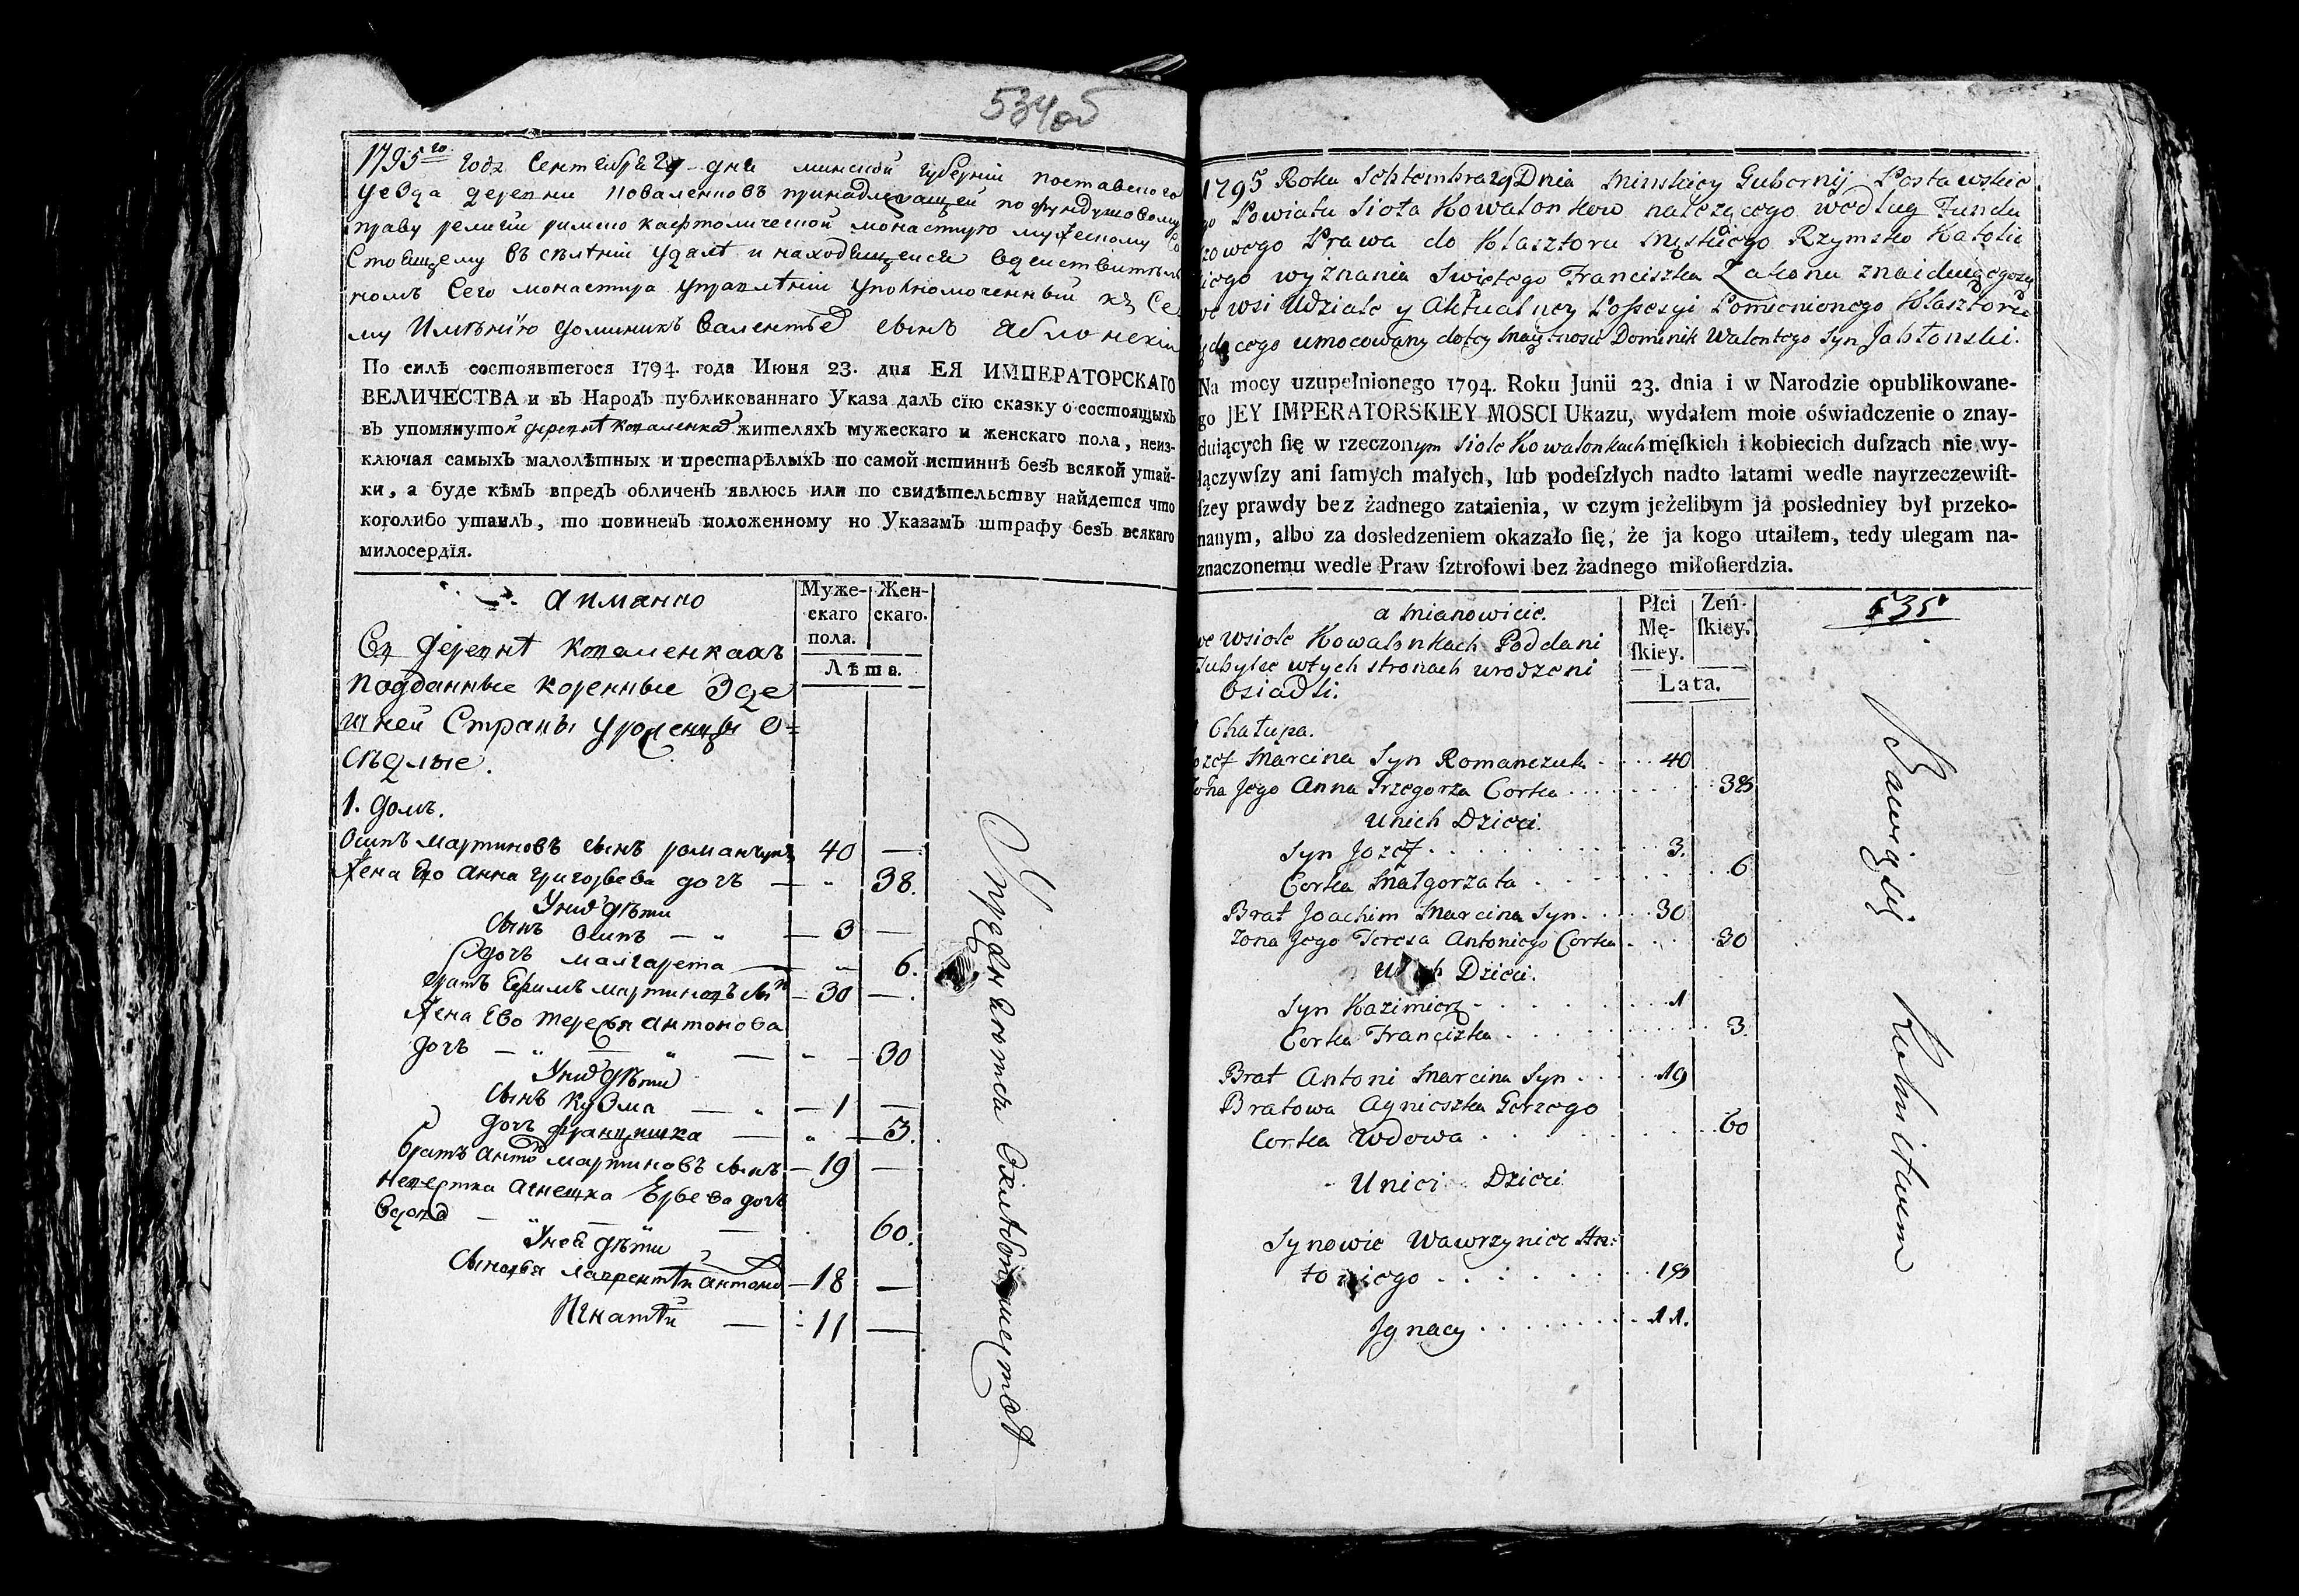 534об
1795го года Сентября 29 дня минской губернiи поставского
уезда деревни Коваленковъ принадлежащей по фундушовому
праву религiи римско кафтолической монастырю мужескому
Стоящему въ селенiи удале и находящейся вдействитель
номъ Сего монастыря управленiи уполномоченный къ Се
му Имѣнiю доминикъ валентъев сынъ яблонскiй
По силѣ состоявшегося 1794. года Июня 23. дня ЕЯ ИМПЕРАТОРСКАГО
ВЕЛИЧЕСТВА и въ Народъ публикованнаго Указа далъ сїю сказку о состоящыхъ
въ упомянутой деревнѣ Коваленках жителяхъ мужескаго и женскаго пола, неиз-
ключая самыхъ малолѣтныхъ и престарѣлыхъ по самой истиннѣ безъ всякой утай-
ки, а буде кѣмъ впредь обличенъ явлюсь или по свидѣтельству найдется что
коголибо утаилъ, то повиненъ положенному по Указамъ штрафу безъ всякаго
милосердїя.
а имянно
Муже-
скаго
пола.
Жен-
скаго.
Лѣта.
Въ деревнѣ Коваленкахъ
подданные коренные Зде
шней Страны уроженцы о=
сѣдлые.
1. домъ.
Осипъ мартиновъ сынъ романчукъ 40 —
Жена Его Анна григорьева дочь — " 38.
У них дѣти
Сынъ Осипъ — " — 3 —
дочъ малгарета — " — 6.
братъ Ефимъ мартиновъ сынъ — 30 —.
Жена Ево тересья антонова
дочъ — " — " — " — 30
У них дѣти
Сынъ Кузма — " — 1 —
дочъ францишка — " — 3.
братъ анто мартиновъ сынъ — 19 —
невестка агнешка Юрьева дочь
вдова — " — " — 60.
У ней дѣти
Сыновья лаврентiй антонов — 18 —
Игнатiй — 11 —
1795 Roku Sebtembra 29 Dnia Minskiey Gubernij Postawskie
go Powiatu Sioła Kowalonkow należącego według Fundu
szowego Prawa do Klasztoru Męskiego Rzymsko Katolic
kiego wyznania Swiętego Franciszka Zakonu znaiduiącegosię
we wsi Udziale y Aktualney Possesyi Pomienionego Klasztoru
będącego umocowany do tey Maiętnosci Dominik Walentego Syn Jabłonski.
Na mocy uzupełnionego 1794. Roku Junii 23. dnia i w Narodzie opublikowane-
go JEY IMPERATORSKIEY MOSCI Ukazu, wydałem moie oświadczenie o znay-
duiących ſię w rzeczonym Siole Kowalonkach męſkich i kobiecich duſzach nie wy-
łączywſzy ani ſamych małych, lub podeſzłych nadto latami wedle nayrzeczewiſt-
ſzey prawdy bez żadnego zataienia, w czym jeżelibym ja posledniey był przeko-
nanym, albo za dosledzeniem okazało ſię, że ja kogo utaiłem, tedy ulegam na-
znaczonemu wedle Praw ſztroſowi bez żadnego miłoſierdzia.
a Mianowicie.
Płci
Mę-
ſkiey.
Zeń-
ſkiey.
Lata.
535
we wsiole Kowalonkach Poddani
Tubylce wtych stronach urodzeni
Osiadli.
1 Chałupa.
Jozef Marcina Syn Romanczuk 40
Zona Jego Anna Grzegorza Corka 38
Unich Dzieci.
Syn Jozef 3.
Corka Małgorzata 6
Brat Joachim Marcina Syn. 30
Zona Jego Teresa Antoniego Corka 30
Unich Dzieci.
Syn Kazimierz 1
Corka Franciszka 3.
Brat Antoni Marcina Syn 19
Bratowa Agnieszka Jerzego
Corka Wdowa 60
Uniei Dzieci
Synowie Wawrzyniec An=
toniego 18
Jgnacy 11.